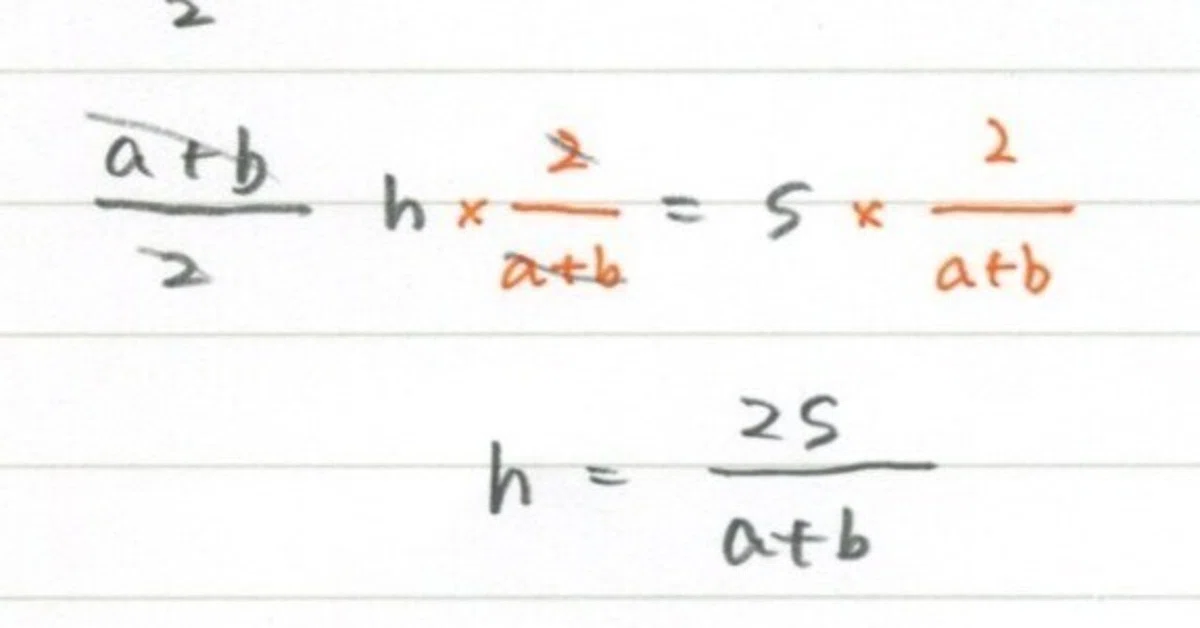 2
a+b/2 h × 2/a+b = S × 2/a+b
h = 2S/a+b